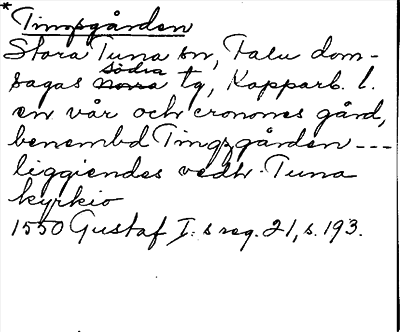 * Tingsgården
Stora Tuna sn, Falu dom-
sagas södra norra tg, Kopparb. l.
en vår och cronones gård,
benembd Tingsgården ---
liggiendes vedh Tuna
kyrkio
1550 Gustaf I:s reg. 21, s. 193.